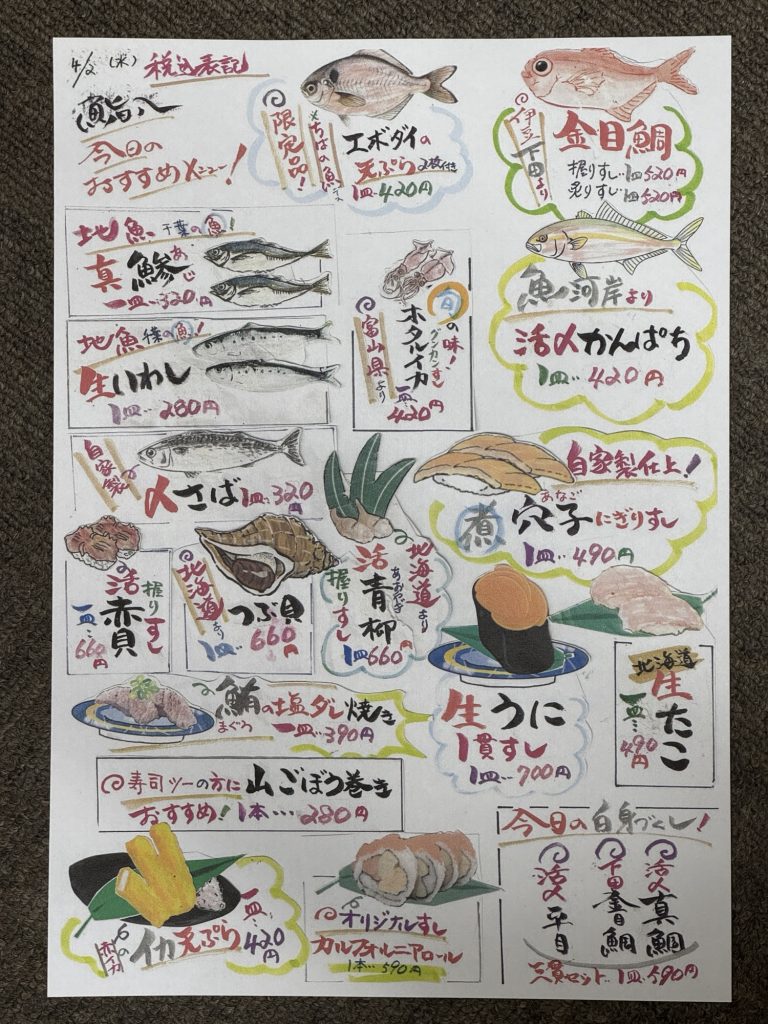 4/2 (水) 税込表記
魚旨八
今日の
おすすめメニュー!
限定品!
ちばの魚
エボダイの
天ぷら 2枚付き
1皿‥420円
伊豆下田より
金目鯛
握りすし‥1皿520円
炙りすし 1皿520円
地魚 千葉の魚!
真鯵
あじ
一皿‥320円
地魚 千葉の魚!
生いわし
1皿‥280円
旬の味!
グンカンすし
ホタルイカ
富山県より
一皿‥420円
魚河岸より
活〆かんぱち
1皿‥420円
自家製の
〆さば 1皿‥320円
自家製仕上!
煮穴子にぎりすし
あなご
1皿‥490円
活赤貝
握りすし
一皿‥660円
北海道より
つぶ貝
1皿‥660円
北海道より
活青柳
あおやぎ
握りすし
1皿660円
北海道
生たこ
一皿‥490円
鮪の塩ダレ焼き
まぐろ
一皿‥390円
生うに
1貫すし
1皿‥700円
寿司ツーの方に 山ごぼう巻き
おすすめ! 1本‥‥280円
今日の白身づくし!
活〆真鯛
下田金目鯛
活〆平目
三貫セット‥1皿‥590円
イカ天ぷら
一皿‥420円
オリジナルすし
カルフォルニアロール
1本‥590円